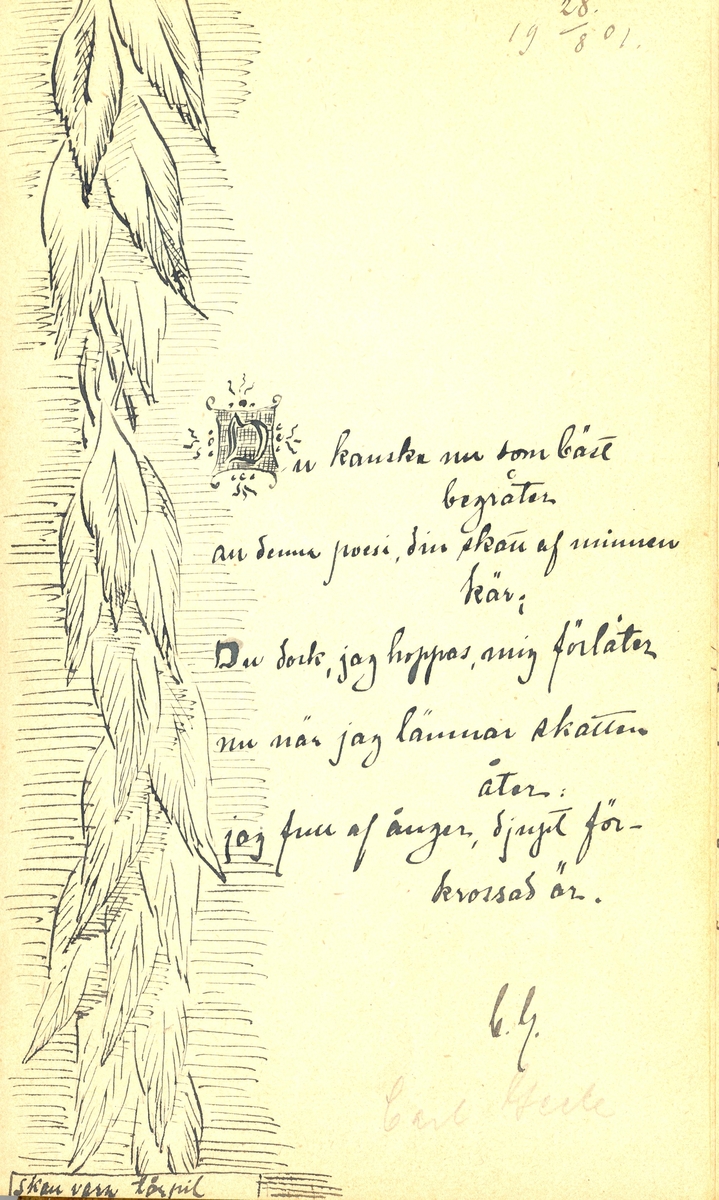 28.
19 8 01.
Du kanske nu som bäst
begråter
an denna poesi, din skatt af minnen
kär;
Du dock, jag hoppas, mig förlåter
nu när jag lämnar skatten
åter:
jag full af ånger, djupt för-
krossad är.
C. G.
Carl
skall vara tårpil